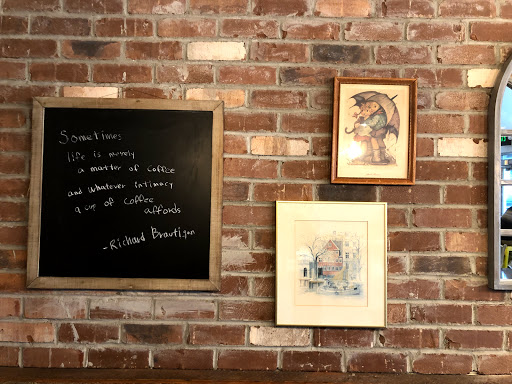 Sometimes
life is merely
a matter of coffee
and whatever intimacy
a cup of coffee
affords
-Richard Brautigan